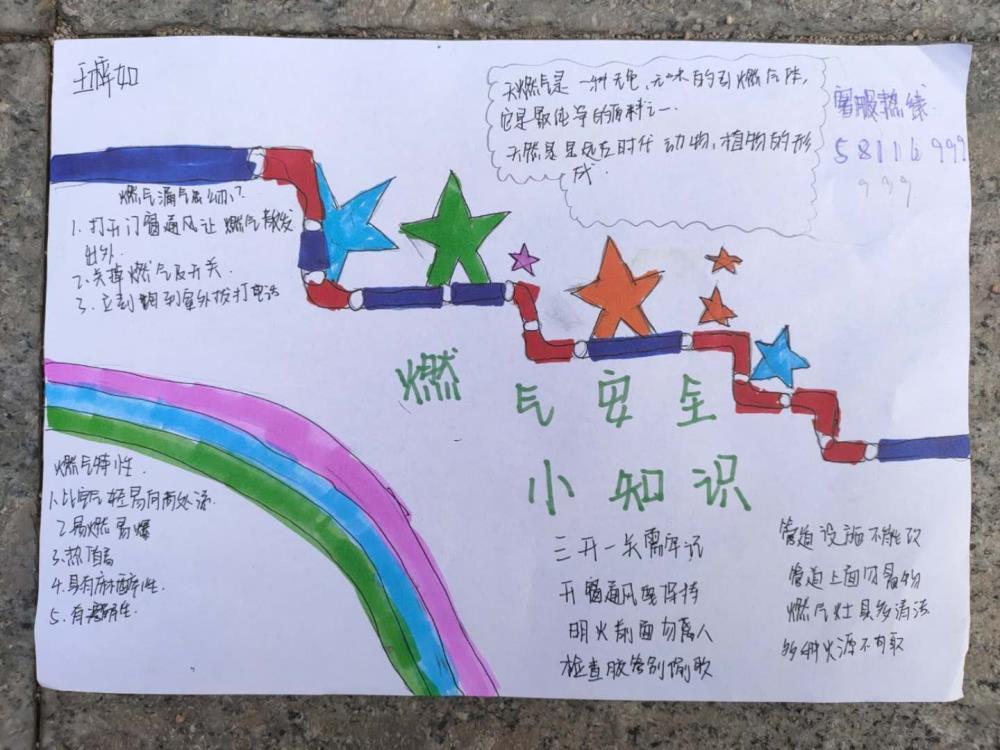 天燃气是一种无色、无味的可燃气体,
它是最化学的原料之一.
天然是是远左时代动物、植物的形
成.
客服热线
58116999
999
燃气漏气怎么办?
1.打开门窗通风让燃气散发
出外.
2.关掉燃气及开关.
3.立刻到室外拨打电话
燃气安全
小知识
燃气特性.
1.比空气轻易向高处流.
2易燃易爆
3.热值高
4.具有麻醉性.
5.有毒性.
三开一关需牢记
开窗通风要保持
明火前面勿离人
检查胶管别偷歇
管道设施不能改
管道上面勿晾物
燃气灶具多清洁
多种火源不可取